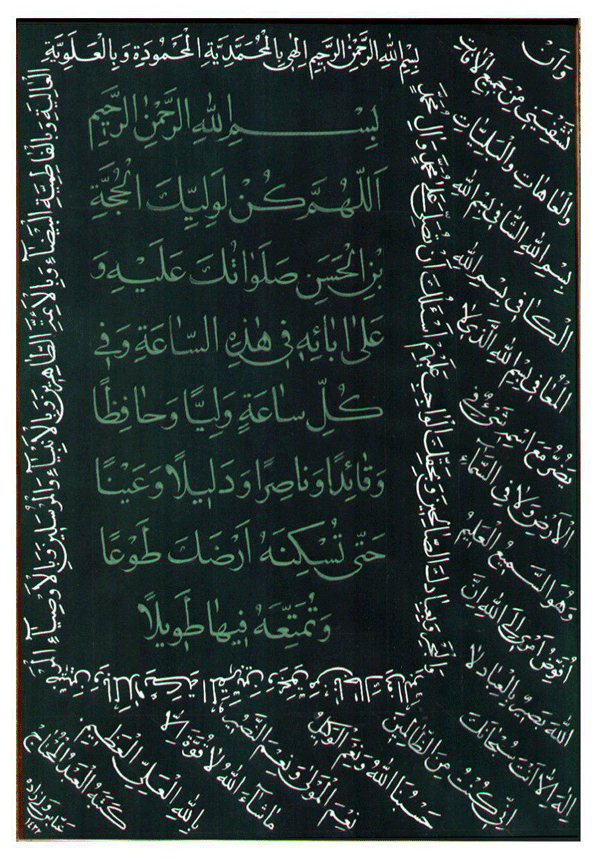 بِسْمِ اللهِ الرَّحْمٰنِ الرَّحِيمِ
اَللّٰهُمَّ كُنْ لِوَلِيِّكَ الْحُجَّةِ
بْنِ الْحَسَنِ صَلَوٰاتُكَ عَلَيْهِ وَ
عَلىٰ اٰبٰائِهِ فِي هٰذِهِ السّٰاعَةِ وَفِي
كُلِّ سٰاعَةٍ وَلِيًّا وَحٰافِظًا
وَقٰائِدًا وَنٰاصِرًا وَدَلِيلًا وَعَيْنًا
حَتّىٰ تُسْكِنَهُ اَرْضَكَ طَوْعًا
وَتُمَتِّعَهُ فِيهٰا طَوِيلًا
بِسْمِ اللهِ الرَّحْمٰنِ الرَّحِيمِ اِلٰهِي بِالْمُحَمَّدِيَّةِ الْمَحْمُودَةِ وَبِالْعَلَوِيَّةِ
الْعٰالِيَةِ وَبِالْفٰاطِمِيَّةِ الْبَيْضٰاءِ وَبِالْاَئِمَّةِ الطّٰاهِرِينَ وَبِالْاَنْبِيٰاءِ وَالْمُرْسَلِينَ وَبِالْاَوْصِيٰاءِ
وَبِعِبٰادِكَ الصّٰالِحِينَ وَبِحَقِّكَ الْوٰاجِبِ عَلَيْهِمْ اَسْئَلُكَ اَنْ تُصَلِّيَ عَلىٰ مُحَمَّدٍ وَاٰلِ مُحَمَّدٍ
وَاَنْ
تَشْفِيَنِي مِنْ جَمِيعِ الْاٰفٰاتِ
وَالْعٰاهٰاتِ وَالْبَلِيّٰاتِ
بِسْمِ اللهِ الشّٰافِي بِسْمِ اللهِ
الْكٰافِي بِسْمِ اللهِ
الْمُعٰافِي بِسْمِ اللهِ الَّذِي لٰا
يَضُرُّ مَعَ اسْمِهِ شَيْءٌ فِي
الْاَرْضِ وَلٰا فِي السَّمٰاءِ
وَهُوَ السَّمِيعُ الْعَلِيمُ
اُفَوِّضُ اَمْرِي اِلَى اللهِ اِنَّ
اللهَ بَصِيرٌ بِالْعِبٰادِ لٰا
اِلٰهَ اِلّٰا اَنْتَ سُبْحٰانَكَ
اِنِّي كُنْتُ مِنَ الظّٰالِمِينَ
حَسْبُنَا اللهُ وَنِعْمَ الْوَكِيلُ
نِعْمَ الْمَوْلىٰ وَنِعْمَ النَّصِيرُ
مٰاشٰاءَ اللهُ لٰا قُوَّةَ اِلّٰا
بِاللهِ الْعَلِيِّ الْعَظِيمِ
كَتَبَهُ الْعَبْدُ الْمُحْتٰاجُ